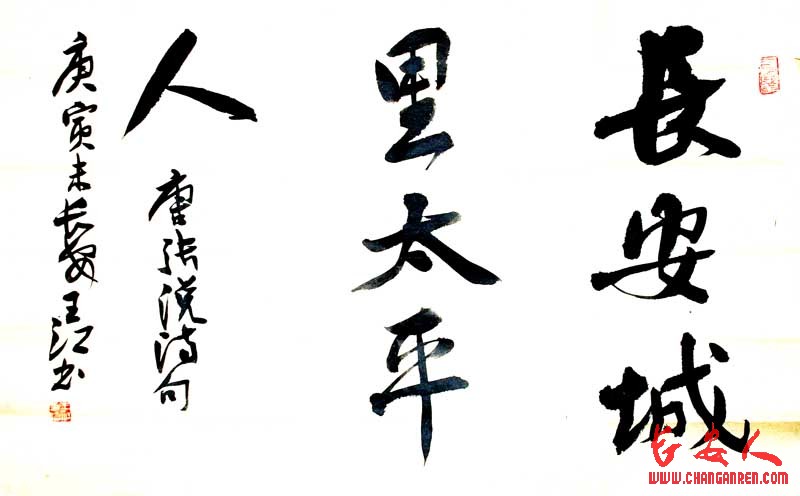 長安城
里太平
人
唐张说诗句
庚寅末长安王江书
长安人
WWW.CHANGANREN.COM